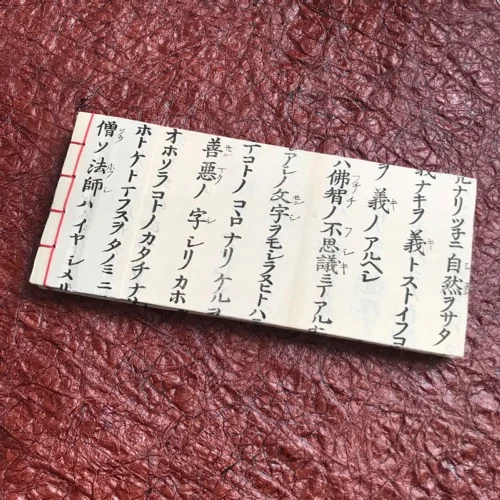 ルナリツ子ニ自然ヲサタ
義ナキヲ義トストイフコ
ヲ義ノアルヘシ
ハ佛智ノ不思議ニテアルナ
アシノ文字ヲモシラヌヒトハ
コトノコヽロナリケルヲ
善惡ノ字シリカホ
オホソラコトノカタチナ
ホトケトイフスヲタノミニ
僧ソ法師ハイヤシメル